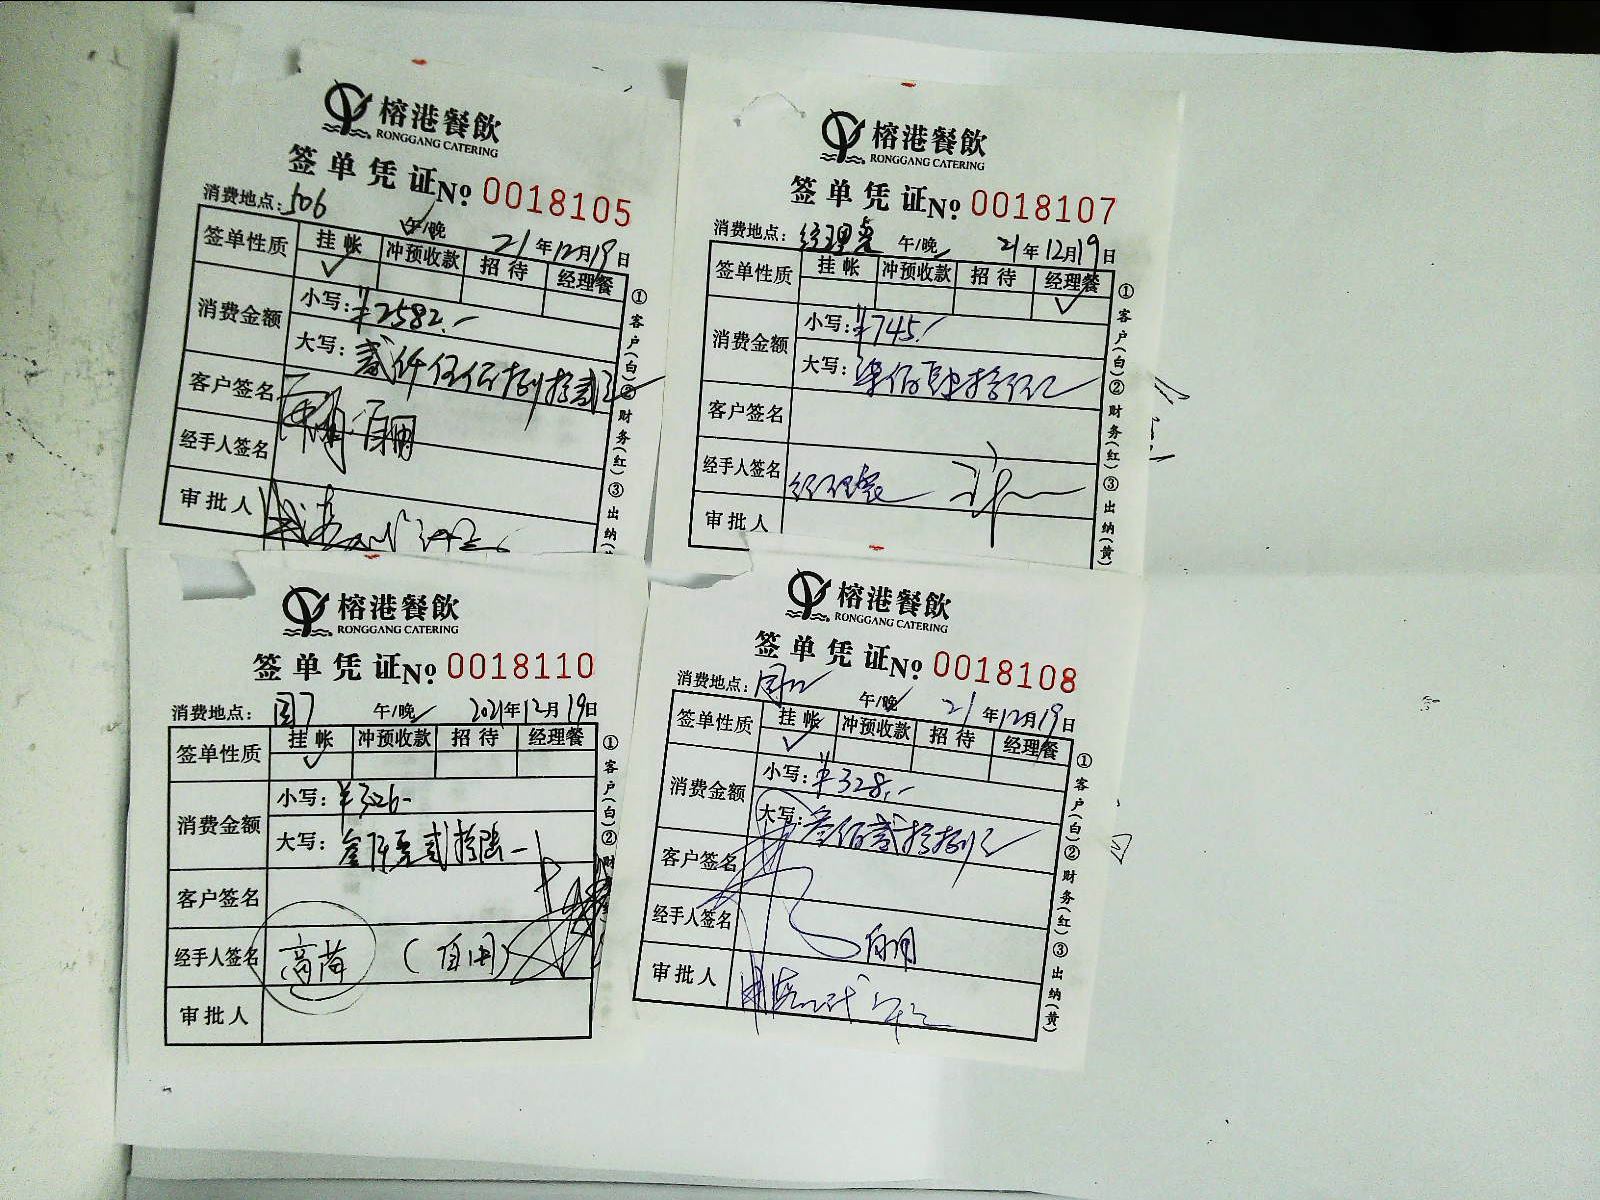 榕港餐飲
RONGGANG CATERING
签单凭证№ 0018105
消费地点: 506 午/晚 21年12月19日
签单性质 挂帐 冲预收款 招待 经理餐
✓
消费金额 小写: ¥2582.-
大写: 贰仟伍佰捌拾贰元
客户签名
经手人签名
审批人
①客户(白)②财务(红)③出纳(
榕港餐飲
RONGGANG CATERING
签单凭证№ 0018107
消费地点: 经理餐 午/晚 21年12月19日
签单性质 挂帐 冲预收款 招待 经理餐
✓
消费金额 小写: ¥745.-
大写: 柒佰肆拾伍元
客户签名
经手人签名 经理餐
审批人
①客户(白)②财务(红)③出纳(黄)
榕港餐飲
RONGGANG CATERING
签单凭证№ 0018110
消费地点: 午/晚 2021年12月19日
签单性质 挂帐 冲预收款 招待 经理餐
✓
消费金额 小写: ¥326-
大写: 叁佰贰拾陆
客户签名
经手人签名 高苗 (自用)
审批人
①客户(白)②财
榕港餐飲
RONGGANG CATERING
签单凭证№ 0018108
消费地点: 午/晚 21年12月19日
签单性质 挂帐 冲预收款 招待 经理餐
✓
消费金额 小写: ¥328.-
大写: 叁佰贰拾捌元
客户签名
经手人签名 自用
审批人
①客户(白)②财务(红)③出纳(黄)